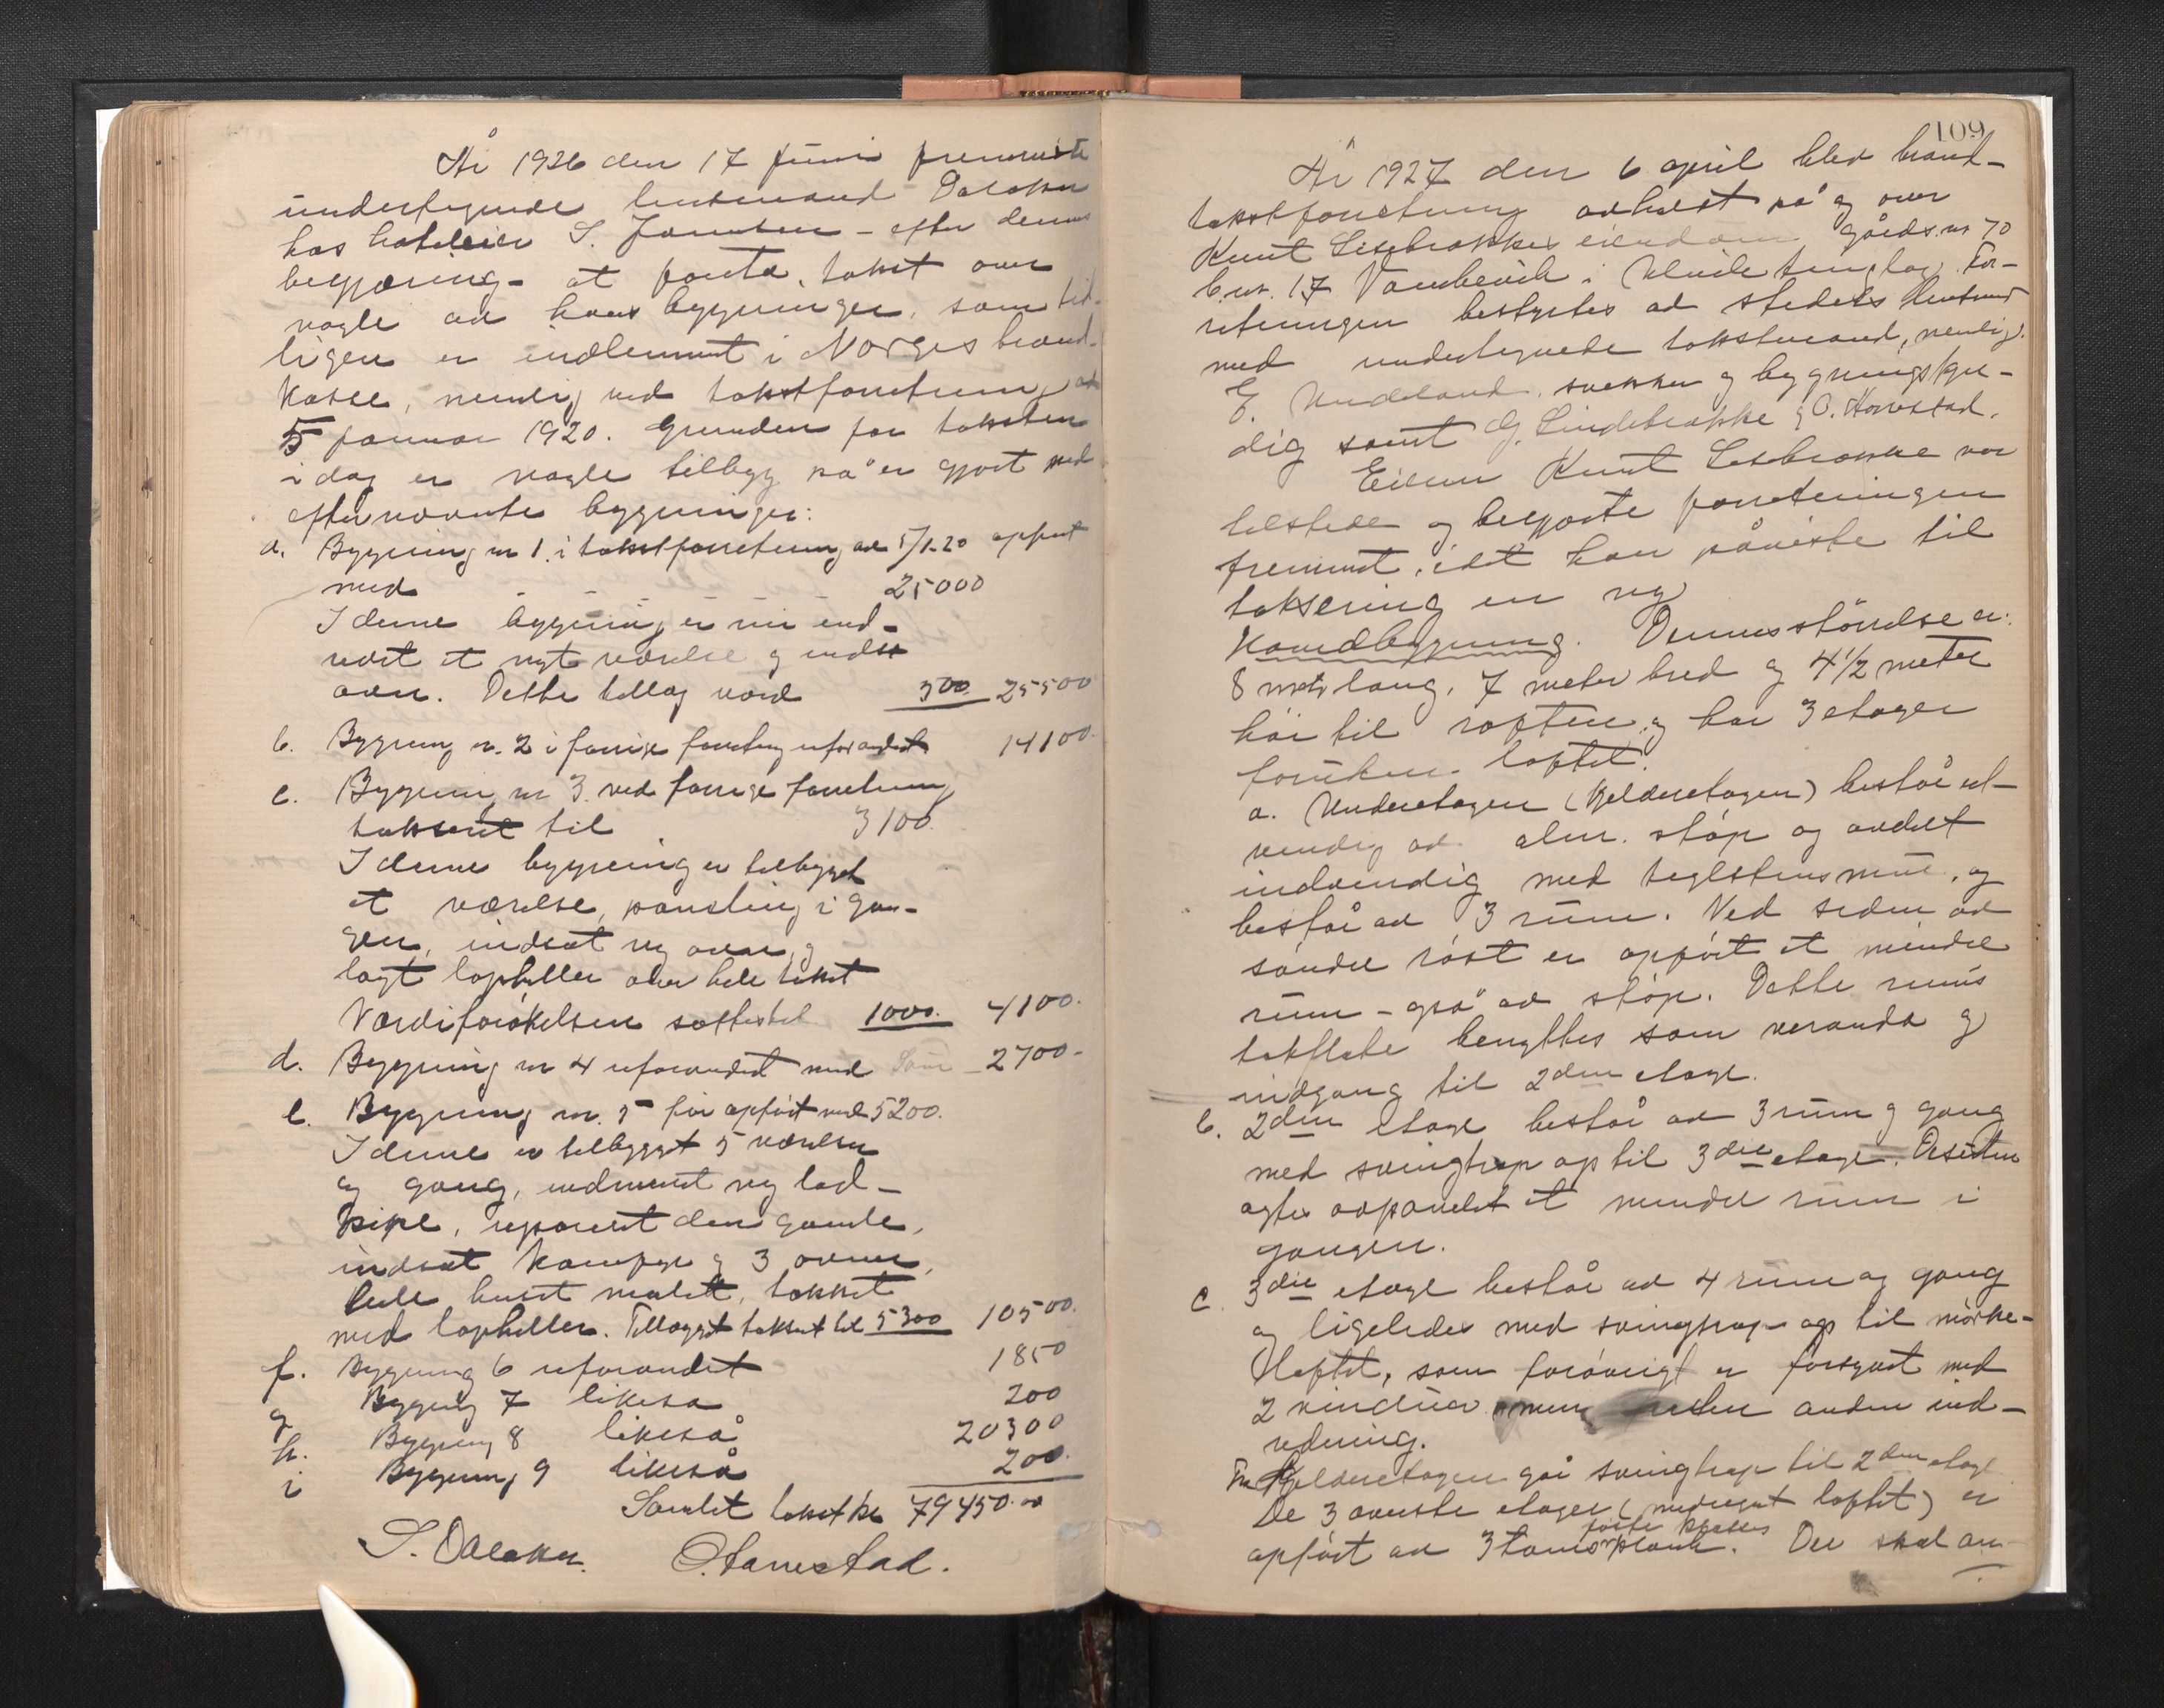 År 1926 den 17 juni fremmøtte
undertegnede lensmand Dalaker
hos hoteleier S. – efter dennes
begjæring – at foreta takst over
nogle av hans bygninger, som tid-
ligere er indlemmet i Norges brand-
kasse, nemlig ved takstforretning av
5 januar 1920. Grunden for taksten
idag er nogle tilbygg på er gjort med
efternævnte bygninger:
a. Bygning nr 1. i takstforretning av 5/1-20 opført
med 25000
I denne bygning er nu ind-
redet et nyt værelse og indsat
ovn. Dette tillæg værd 500 25500
b. Bygning nr. 2 i forrige forretning uforandret 14100.
c. Bygning nr 3. ved forrige forretning
taksert til 3100.
I denne bygning er tilbygget
et værelse, paneling i gan-
gen, indsat ny ovn og
lagt lapheller over hele taket
Værdiforøkelsen sættes til 1000. 4100.
d. Bygning nr 4 uforandret med 2700-
e. Bygning nr. 5 før opført med 5200.
I denne er tilbygget 5 værelser
og gang, indmuret ny lad-
pipe, reparert den gamle,
indsat komfyr og 3 ovner,
hele huset malet, takket
med lapheller. Tillægget taksert til 5300 10500.
f. Bygning 6 uforandret 1850
g Bygning 7 likesa 200
h. Bygning 8 likeså 20300
i Bygning 9 likeså 200.
Samlet takst kr 79450.00
S. Dalaker. O. Hamrestad.
109
År 1927 den 6 april blev brand-
takstforretning avholdt på og over
Knut eiendom, gårds.nr 70
b.nr. 17 i tinglag. For-
retningen bestyrtes av stedets lensmand
med undertegnede takstmænd, nemlig.
E. Undeland, snekker og bygningskyn-
dig samt G. Lindebrække & O. Hamrestad.
Eieren Knut var
tilstede og begjærte forretningen
fremmet, idet han påviste til
taksering en ny
Våndbygning. Dennes størrelse er:
8 meter lang, 7 meter bred og 4 1/2 meter
høi til røften og har 3 etager
foruten loftet.
a. Underetagen (kjelderetagen) består ut-
vendig av alm. støp og avdelt
indvendig med teglstensmur, og
består av 3 rum. Ved siden av
søndre røst er opført et mindre
rum – også av støp. Dette rums
takflate benyttes som veranda og
indgang til 2den etage.
b. 2den etage består av 3 rum og gang
med svingtrap op til 3die etage. Desuten
agtes avpanelet et mindre rum i
gangen.
c. 3die etage består av 4 rum og gang
og ligeledes med svingtrap op til mørke-
loftet, som forøvrigt er forsynt med
2 vinduer men uten anden ind-
redning.
Fra Kjelderetagen går svingtrap til 2den etage
De 3 øverste etager (medregnet loftet) er
opført av 3 toms planke. Der skal an-